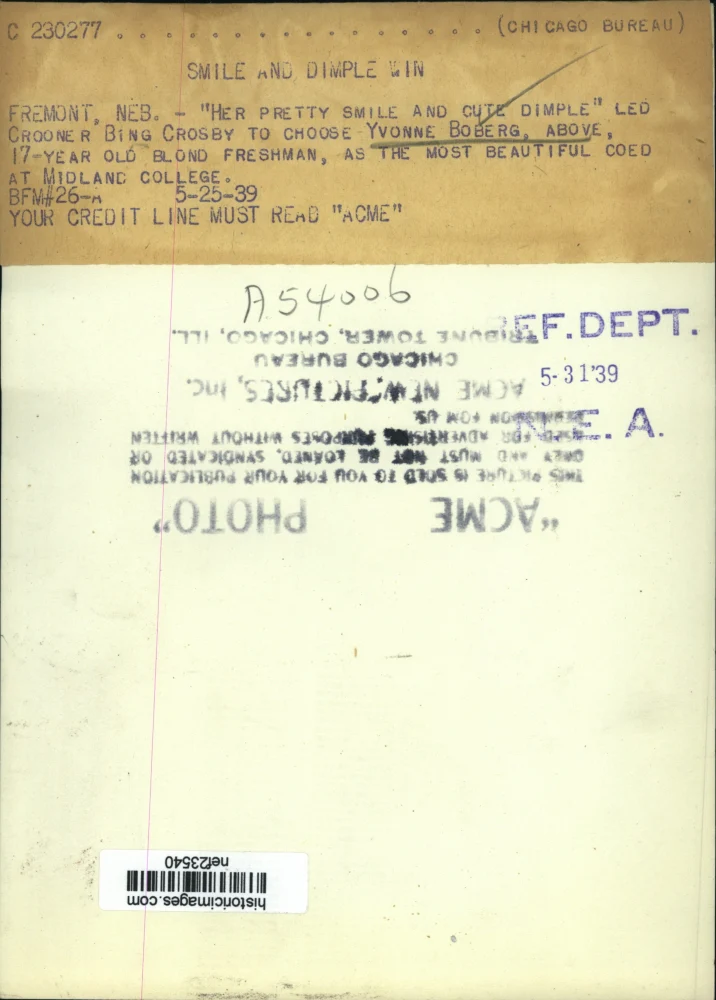 C 230277 . . . . . . . . . . . . . . . . (CHICAGO BUREAU)
SMILE AND DIMPLE WIN
FREMONT, NEB. - "HER PRETTY SMILE AND CUTE DIMPLE" LED
CROONER BING CROSBY TO CHOOSE YVONNE BOBERG, ABOVE,
17-YEAR OLD BLOND FRESHMAN, AS THE MOST BEAUTIFUL COED
AT MIDLAND COLLEGE.
BFM#26-A 5-25-39
YOUR CREDIT LINE MUST READ "ACME"
A54006
REF. DEPT.
5-31'39
N. E. A.
"ACME PHOTO"
THIS PICTURE IS SOLD TO YOU FOR YOUR PUBLICATION
ONLY AND MUST NOT BE LOANED, SYNDICATED OR
USED FOR ADVERTISING PURPOSES WITHOUT WRITTEN
PERMISSION FROM US
ACME NEWSPICTURES, Inc.
CHICAGO BUREAU
TRIBUNE TOWER, CHICAGO, ILL.
historicimages.com
nef23540